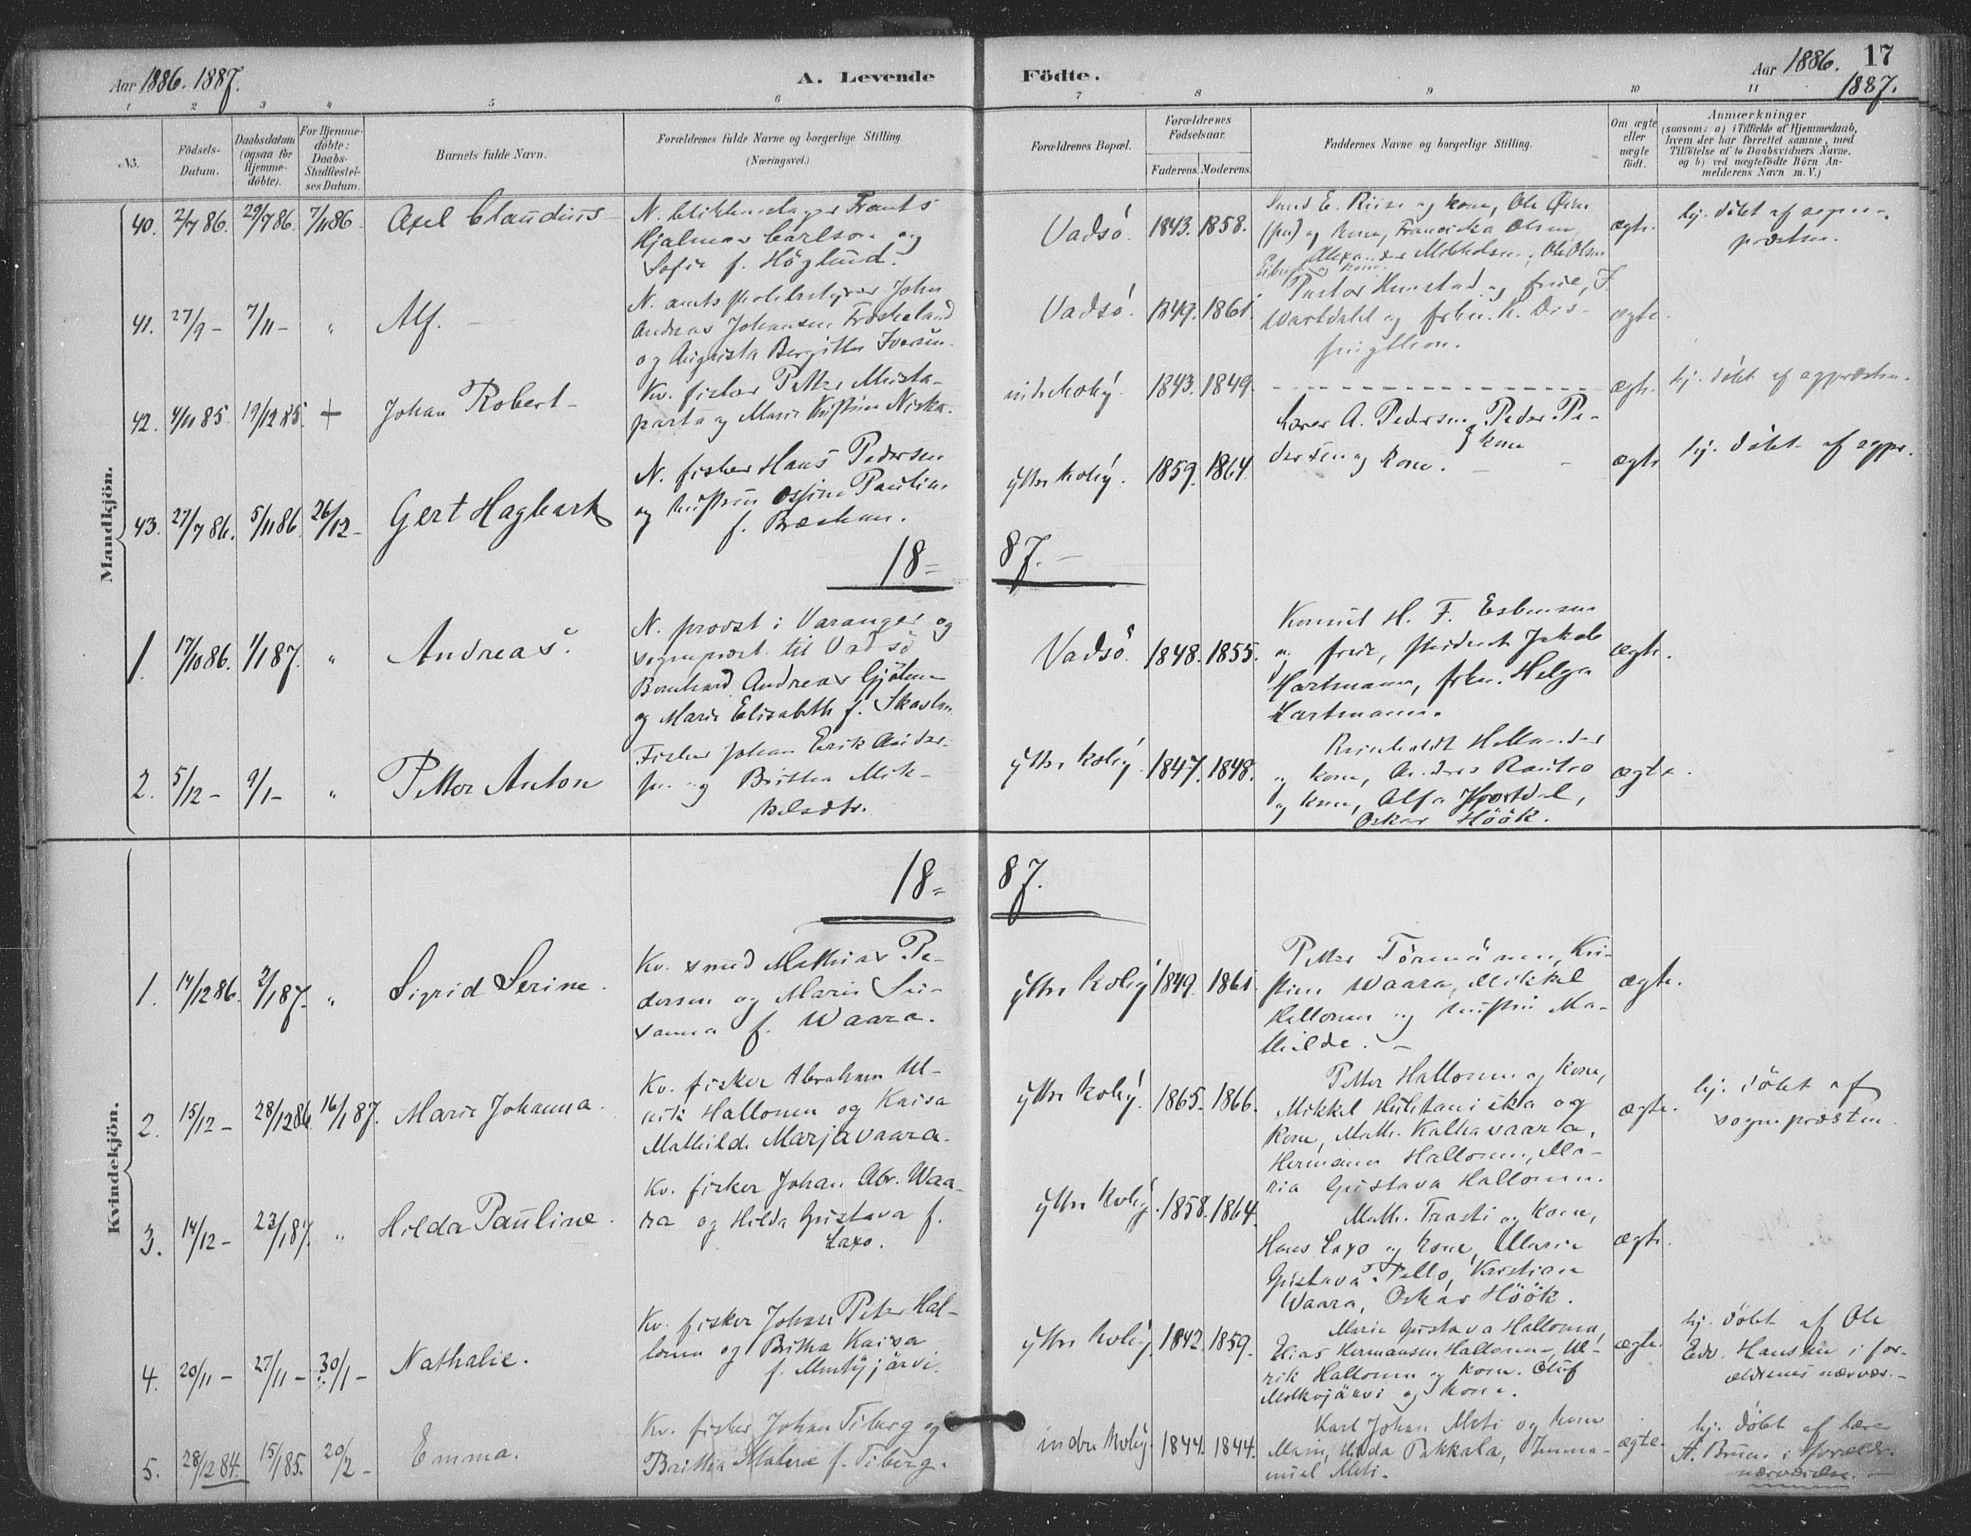 Aar 1886. 1887.
A. Levende
Födte.
Aar 1886. 17
1887.
1 2 3 4 5 6 7 8 9 10 11
No.
Födsels-
Datum.
Daabsdatum
(ogsaa for
Hjemme-
döbte).
For Hjemme-
döbte:
Daabs-
Stadfæstel-
ses Datum.
Barnets fulde Navn.
Forældrenes fulde Navne og borgerlige Stilling.
(Næringsvei.)
Forældrenes Bopæl.
Forældrenes
Födselsaar.
Faderens. Moderens.
Faddernes Navne og borgerlige Stilling.
Om ægte
eller
uægte
födt.
Anmærkninger
(saasom: a) i Tilfælde af Hjemmedaab,
hvem der har forrettet samme, med
Tilföielse af to Daabsvidners Navne,
og b) ved uægtefödte Börn An-
melderens Navn m. V.)
Mandkjön.
40. 2/7 86. 29/7 86. 7/11 86. Axel Claudius
Hjalmar Carlson og
Sofie f. Höglund.
Vadsö. 1843. 1858.
ægte.
hj. döbt af sogne-
præsten.
41. 27/9 - 7/11 - " Alf.
Andreas Johansen
og Augusta Bergitte Iversen.
Vadsö. 1849. 1861.
ægte.
42. 4/11 85. 19/12 85. + Johan Robert
Kv. fisker Petter Niska-
parta og Marie Niska-
1843. 1849.
ægte.
hj. döbt af sgpræsten.
43. 27/7 86. 5/11 86. 26/12 - Gert Hagbart
N. fisker Hans Pedersen
og hustru Ossine Pauline
f. Brækan.
yttre Kobÿ. 1859. 1864.
Lærer A. Pedersen og kone Peder Pe-
dersen og kone.
ægte
hj. döbt af sgpr.
18= 87.-
1. 17/10 86. 1/1 87. " Andreas.
N. provst i Varanger og
sognepræst til Vadsö
Bernhard Andreas Gjölme
og Marie Elisabeth f. Skavlan
Vadsö. 1848. 1855.
Konsul H. F. Esbensen
og frue, student Jakob
Hartmann, frkn. Helga
Hartmann.
ægte.
2. 5/12 - 9/1 - " Petter Anton
Fisker Johan Erik Anders-
sen og Britha Mik-
kelsdtr.
yttre Kobÿ. 1847. 1848.
og kone, Andras Rautio
og kone,
Oskar Höök.
ægte.
Kvindekjön.
18= 87.
1. 14/12 86. 2/1 87. " Sigrid Serine.
Kv. smed Mathias Pe-
dersen og Marie Su-
sanna f. Waara.
yttre Kobÿ 1849. 1861.
Petter Törmänen, Kri-
stine Waara, Mikkel
Hallonen og hustru Ma-
thilde.
ægte.
2. 15/12 - 28/12 86. 16/1 87. Marie Johanna.
Kv. fisker Abraham Ul-
rik Hallonen og Kaisa
Mathilde Marjavaara.
yttre Kobÿ. 1865. 1866.
Petter Hallonen og kone,
Mikkel og
kone, Math. Kalkavaara,
Hermann Hallonen, Ma-
ria Gustava Hallonen.
ægte.
hj. döbt af
sognepræsten.
3. 14/12 - 23/1 87. " Hilda Pauline.
Kv. fisker Johan Abr. Waa-
ra og Hilda Gustava f.
Laxo.
yttre Kobÿ. 1858. 1864.
Math. Trasti og kone,
Hans Laxo og kone, Maria
Gustava Pello, Kristian
Waara, Oskar Höök.
ægte.
4. 20/11 - 27/11 - 30/1 - Nathalie.
Kv. fisker Johan Peter Hal-
lonen og Britha Kaisa
f. Muntyjärvi.
yttre Kobÿ 1842. 1859.
Maria Gustava Hallonen,
Elias Hermansen Hallonen, Ul-
rik Hallonen og kone. Oluf
Molkojärvi og kone.
ægte.
hj. döbt af Ole
Edv. Hansen i for-
ældrenes nærvær.-
5. 28/12 84. 15/1 85. 20/2 - Emma.
Kv. fisker Johan Tiberg og
Britha Malene f. Tiberg.
indre Kobÿ. 1844. 1844.
Karl Johan Meti og kone
Marie, Hilda Pakkala, Imma-
nuel Meti.
ægte.
hj. döbt af lærer
A. Bruun i forældr.
nærværelse.